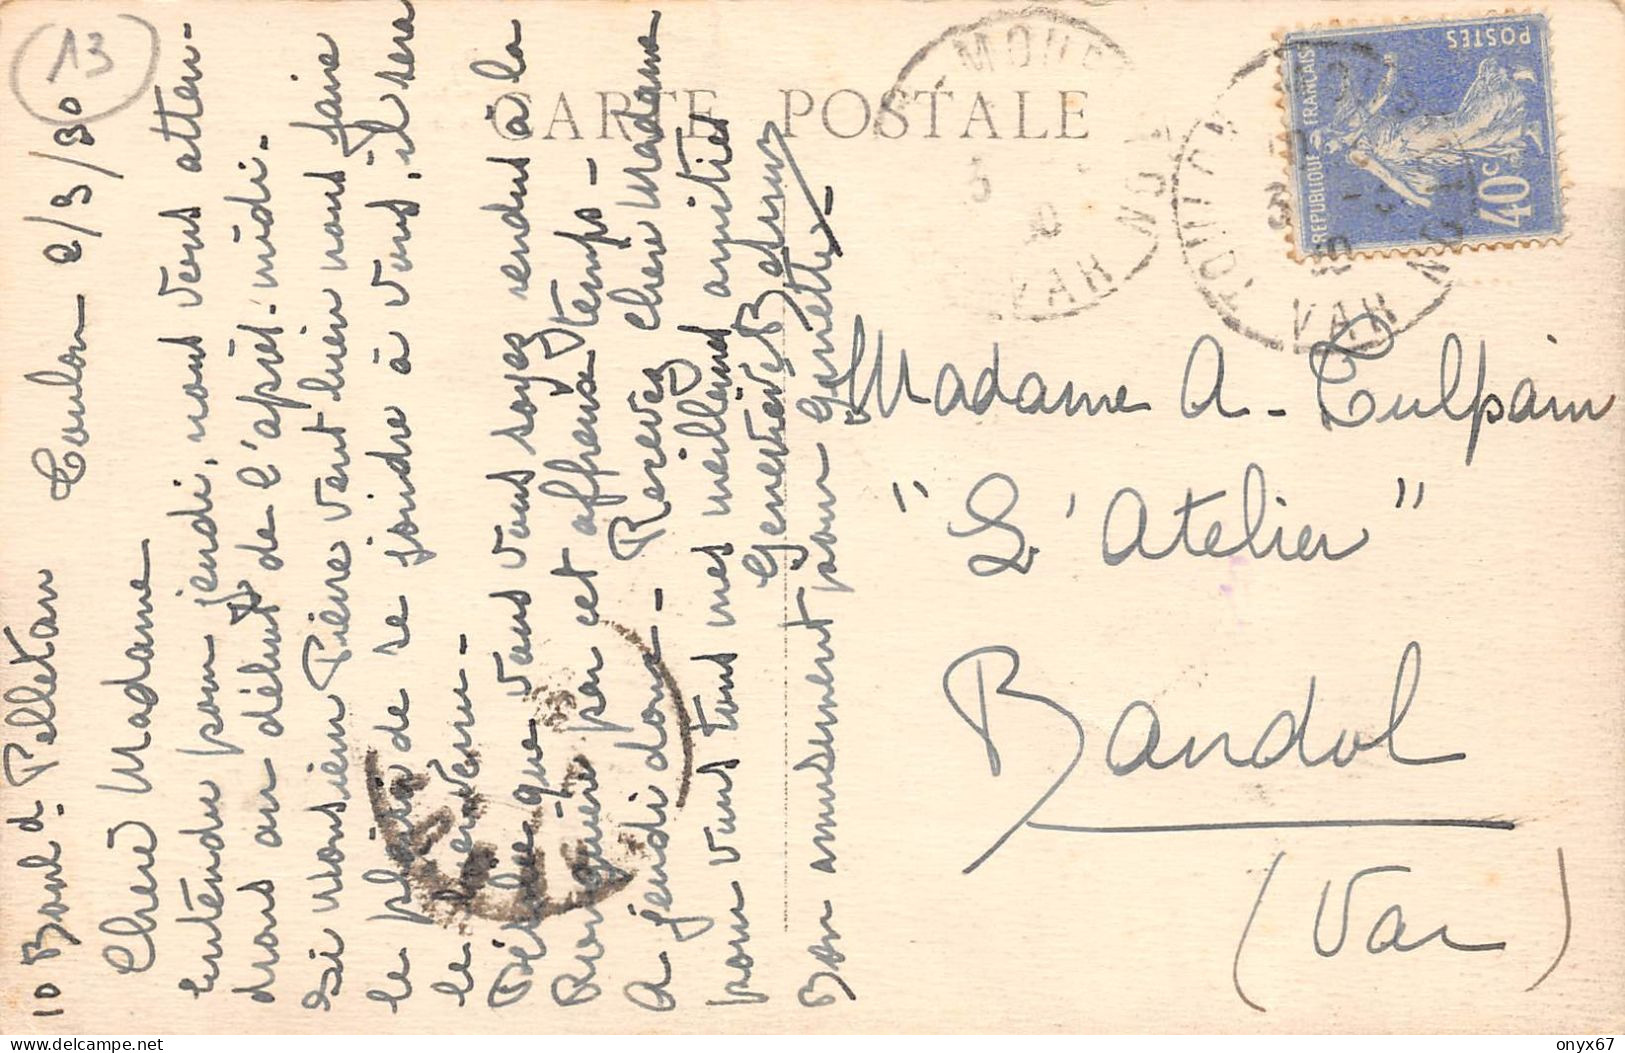 13
10 Boul d. Pelletan Toulon 2/3/30
Chère Madame
Entendu pour jeudi, nous vous atten-
drons au début de l'après-midi -
Si Monsieur Pierre veut bien nous faire
le plaisir de se joindre à vous, il sera
le bienvenu -
que vous vous soyez rendus à la
par cet affreux temps -
A jeudi donc - Recevez chère Madame
pour vous tous mes meilleures amitiés
Geneviève B
Bon amusement pour Ginette -
CARTE POSTALE
TOULON
VAR
TOULON
VAR
REPUBLIQUE FRANÇAISE
POSTES
40c
Madame A - Tulpain
"L'Atelier"
Bandol
(Var)
delcampe.net
onyx67